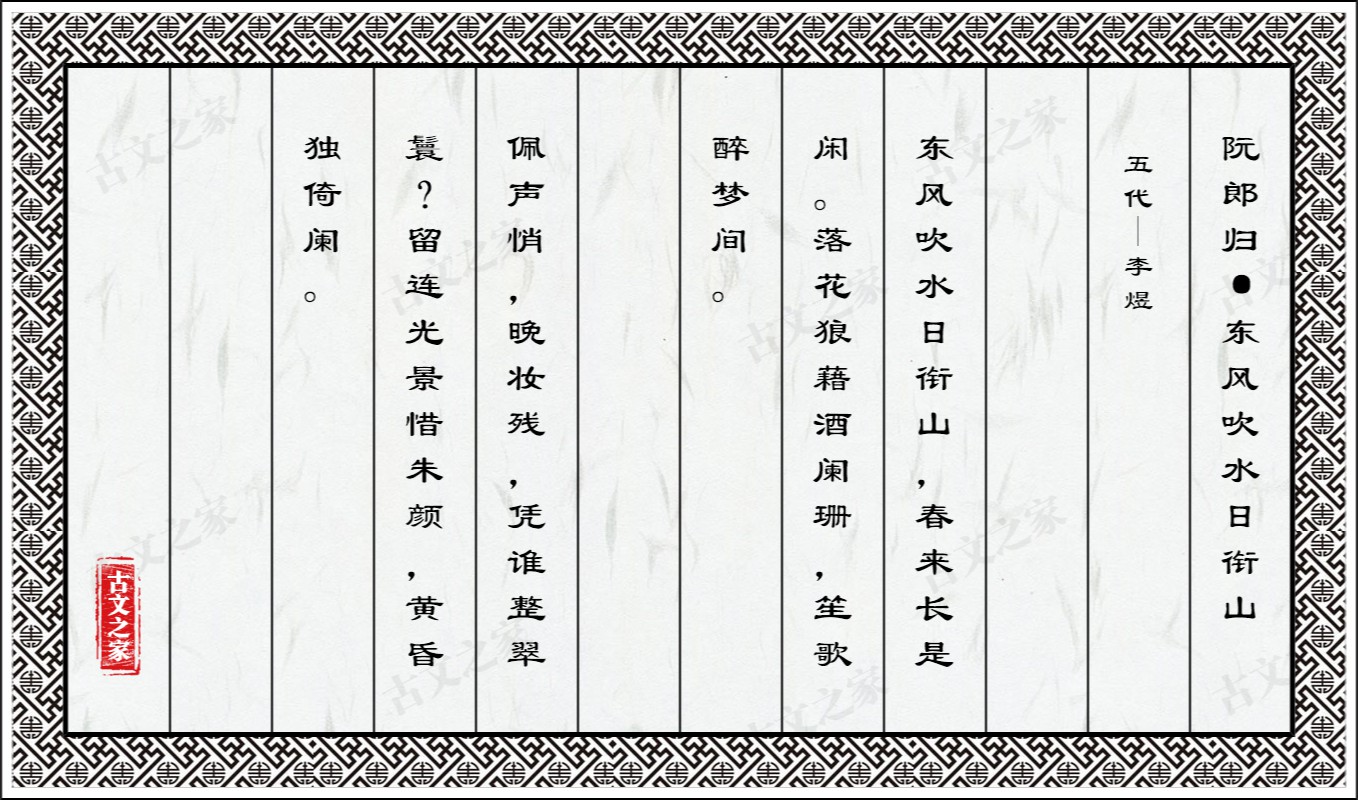 阮郎归●东风吹水日衔山
五代｜李煜
东风吹水日衔山，春来长是
闲。落花狼藉酒阑珊，笙歌
醉梦间。
佩声悄，晚妆残，凭谁整翠
鬟？留连光景惜朱颜，黄昏
独倚阑。
古文之家